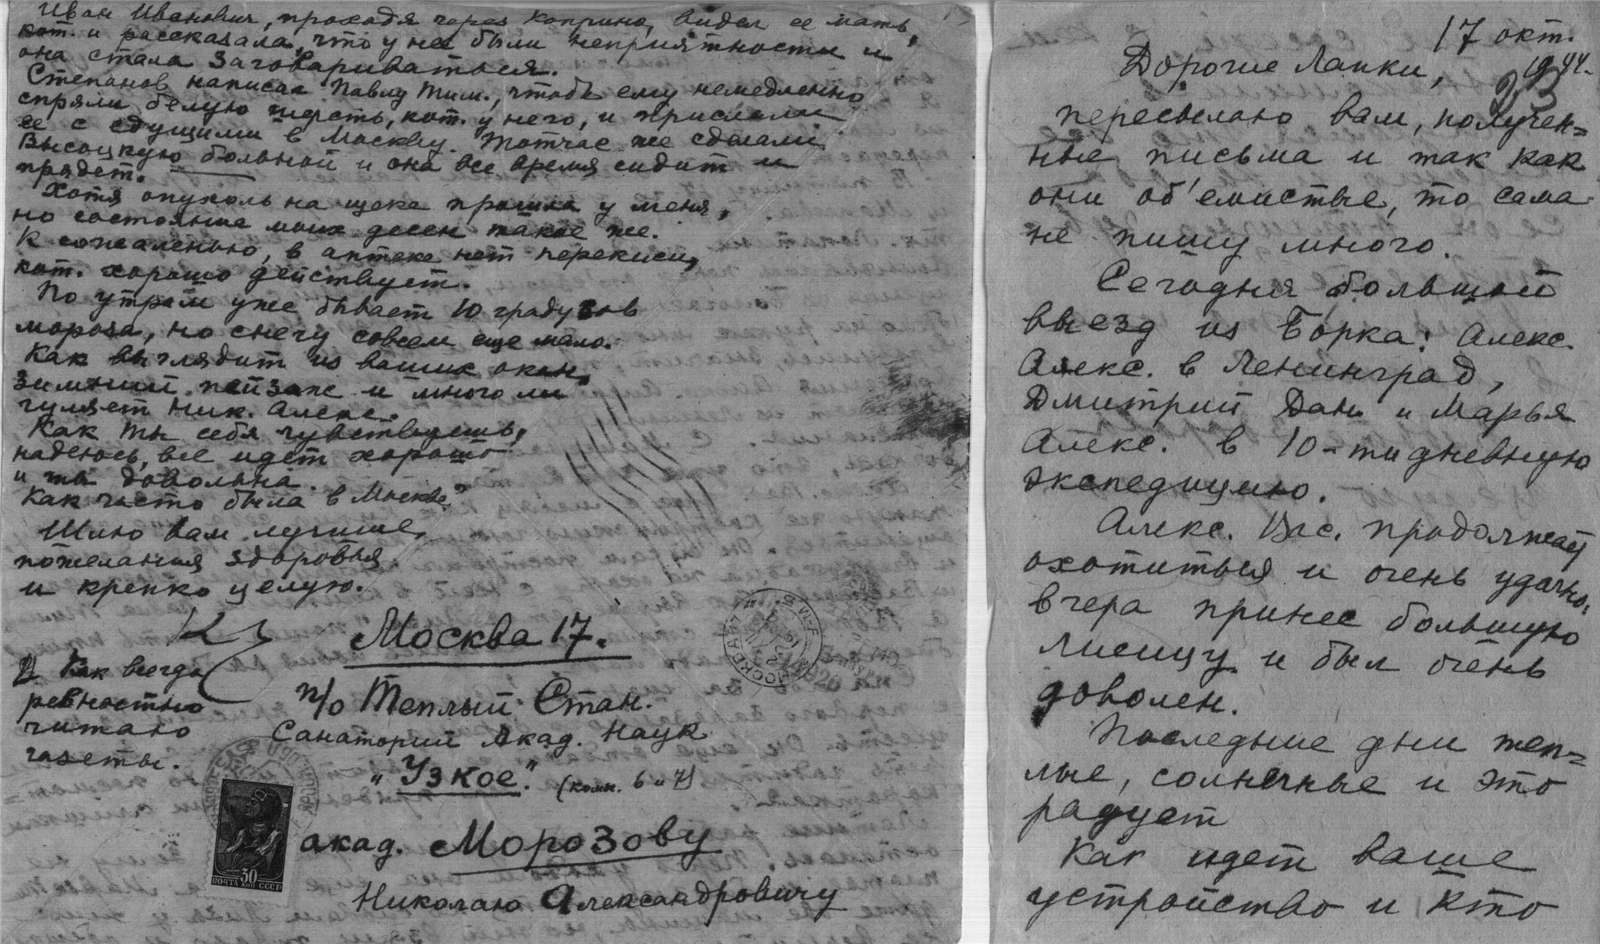 Иван Иванович, проходя через Коприно, видел ее мать,
кот. и рассказала, что у нее были неприятности и
она стала заговариваться.
Степанов написал Павлу Тим., чтобы ему немедленно
спряли белую шерсть, кот. у него, и прислали
ее с едущими в Москву. Тотчас же сделали
Высоцкую больной и она все время сидит и
прядет.
Хотя опухоль на щеке прошла у меня,
но состояние моих десен такое же.
К сожаленью, в аптеке нет перекиси,
кот. хорошо действует.
По утрам уже бывает 10 градусов
мороза, но снегу совсем еще мало.
Как выглядит из ваших окон
зимний пейзаж и много ли
гуляет Ник. Алекс.
Как ты себя чувствуешь,
надеюсь, все идет хорошо
и ты довольна.
Как часто была в Москве?
Шлю вам лучшие
пожелания здоровья
и крепко целую.
Как всегда
ревностно
читаю
газеты.
Москва 17.
п/о Теплый Стан.
Санаторий Акад. Наук
"Узкое". (комн. 6 и 7)
акад. Морозову
Николаю Александровичу
30
ПОЧТА КОП СССР
17 окт.
1944.
23
Дорогие Лапки,
пересылаю вам, получен=
ные письма и так как
они об'емистые, то сама
не пишу много.
Сегодня большой
выезд из Борка: Алекс.
Алекс. в Ленинград,
Дмитрий Дан. и Марья
Алекс. в 10-ти дневную
экспедицию.
Алекс. Вас. продолжает
охотиться и очень удачно,
вчера принес большую
лисицу и был очень
доволен.
Последние дни теп=
лые, солнечные и это
радует
Как идет ваше
устройство и кто